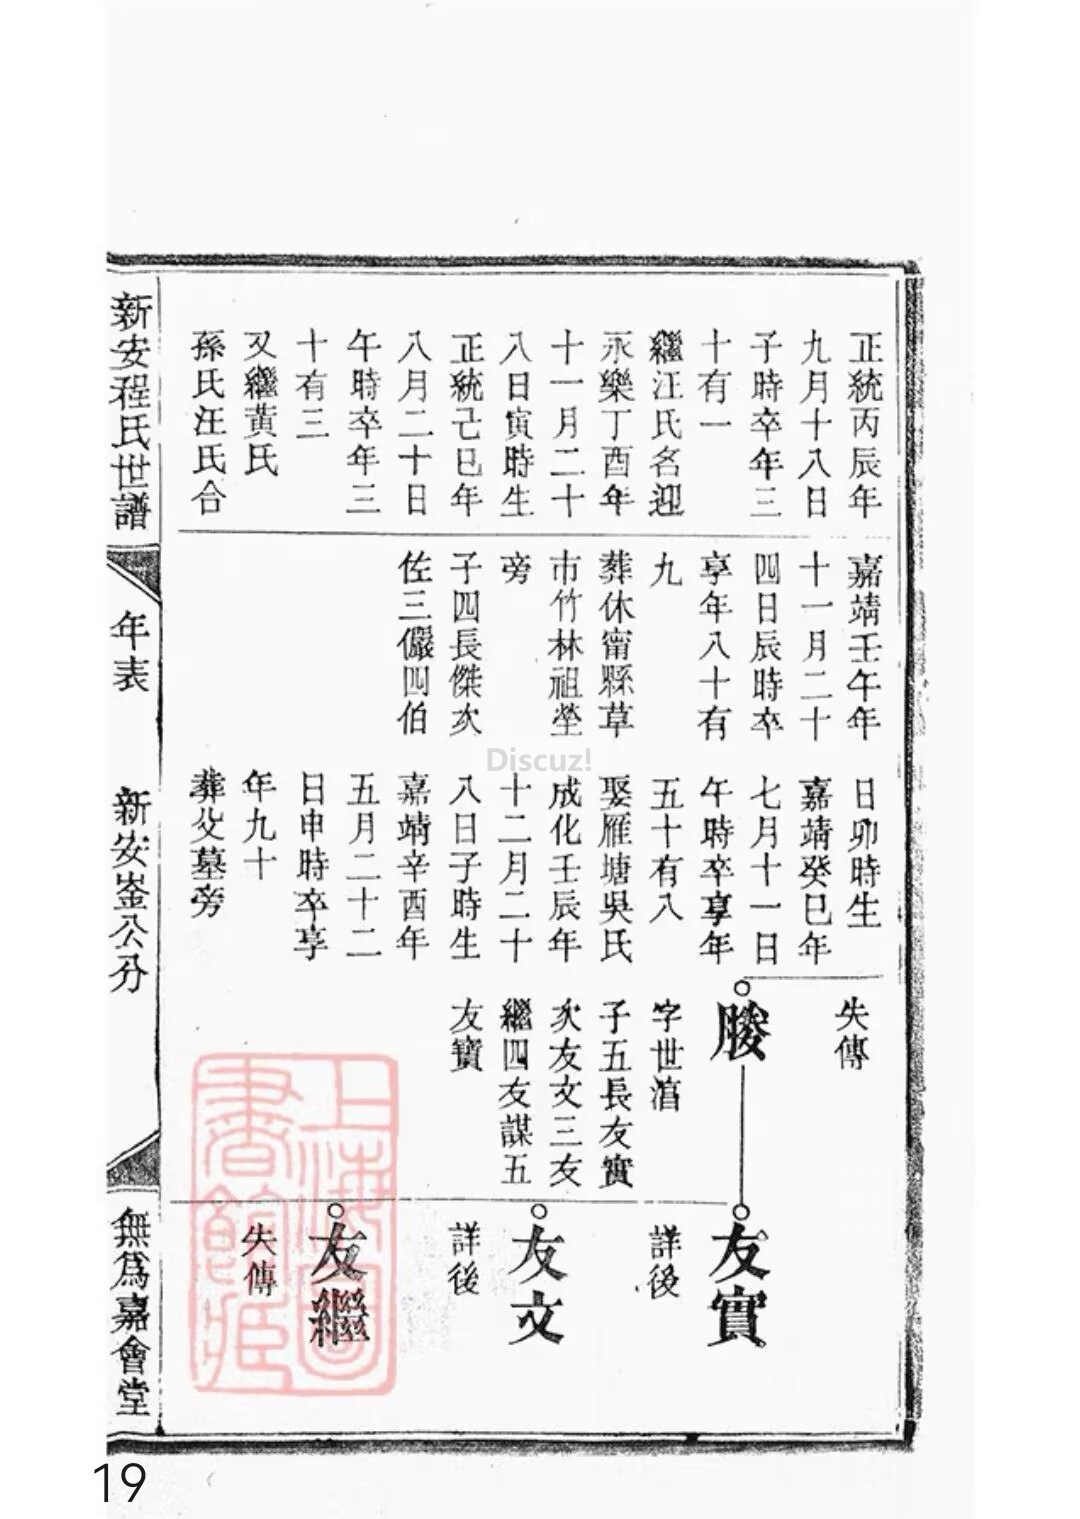 正統丙辰年
九月十八日
子時卒年三
十有一
繼汪氏名迎
永樂丁酉年
十一月二十
八日寅時生
正統己巳年
八月二十日
午時卒年三
十有三
又繼黃氏
孫氏汪氏合
嘉靖壬午年
十一月二十
四日辰時卒
享年八十有
九
葬休甯縣草
市竹林祖塋
旁
子四長傑次
佐三儼四伯
日卯時生
嘉靖癸巳年
七月十一日
午時卒享年
五十有八
娶雁塘吳氏
成化壬辰年
十二月二十
八日子時生
嘉靖辛酉年
五月二十二
日申時卒享
年九十
葬父墓旁
失傳
朘
字世濬
子五長友實
次友文三友
繼四友謀五
友寶
友實
詳後
友文
詳後
友繼
失傳
新安程氏世譜
年表
新安崟公分
無爲嘉會堂
上海圖書館藏
Discuz!
19